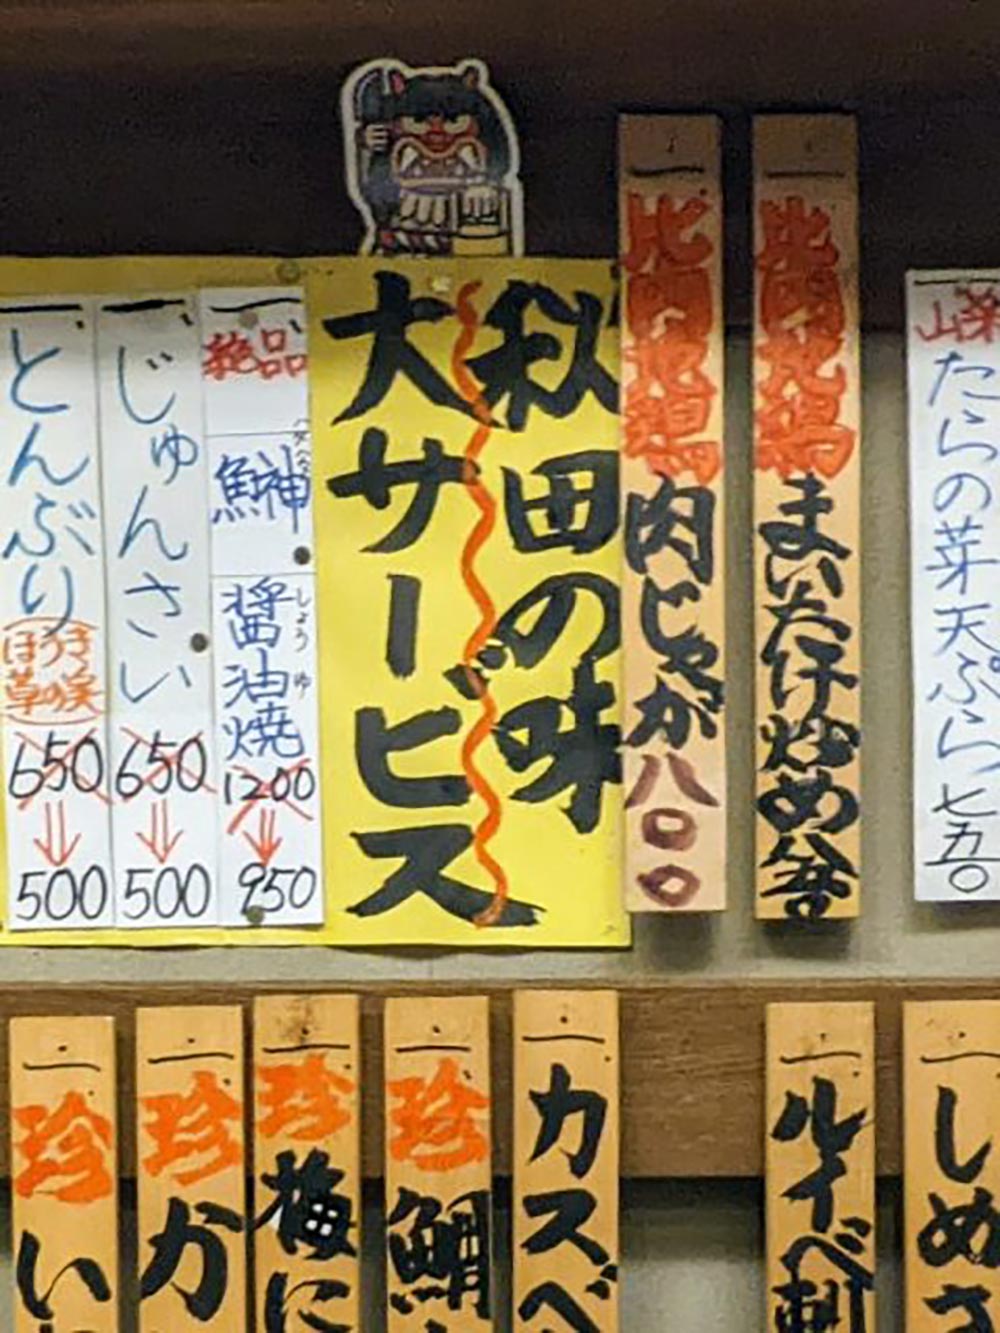 一、山菜たらの芽天ぷら七五〇
一、比内地鶏まいたけ炒め
一、比内地鶏肉じゃが八〇〇
秋田の味
大サービス
一、絶品 鰰 醤油焼 1200 ⇓ 950
ハタハタ
しょうゆ
一、じゅんさい 650 ⇓ 500
一、とんぶり (ほうき草の実) 650 ⇓ 500
一、しめさ
一、ルイベ刺
一、カスベ
一、珍鯛
一、珍梅に
一、珍か
一、珍い